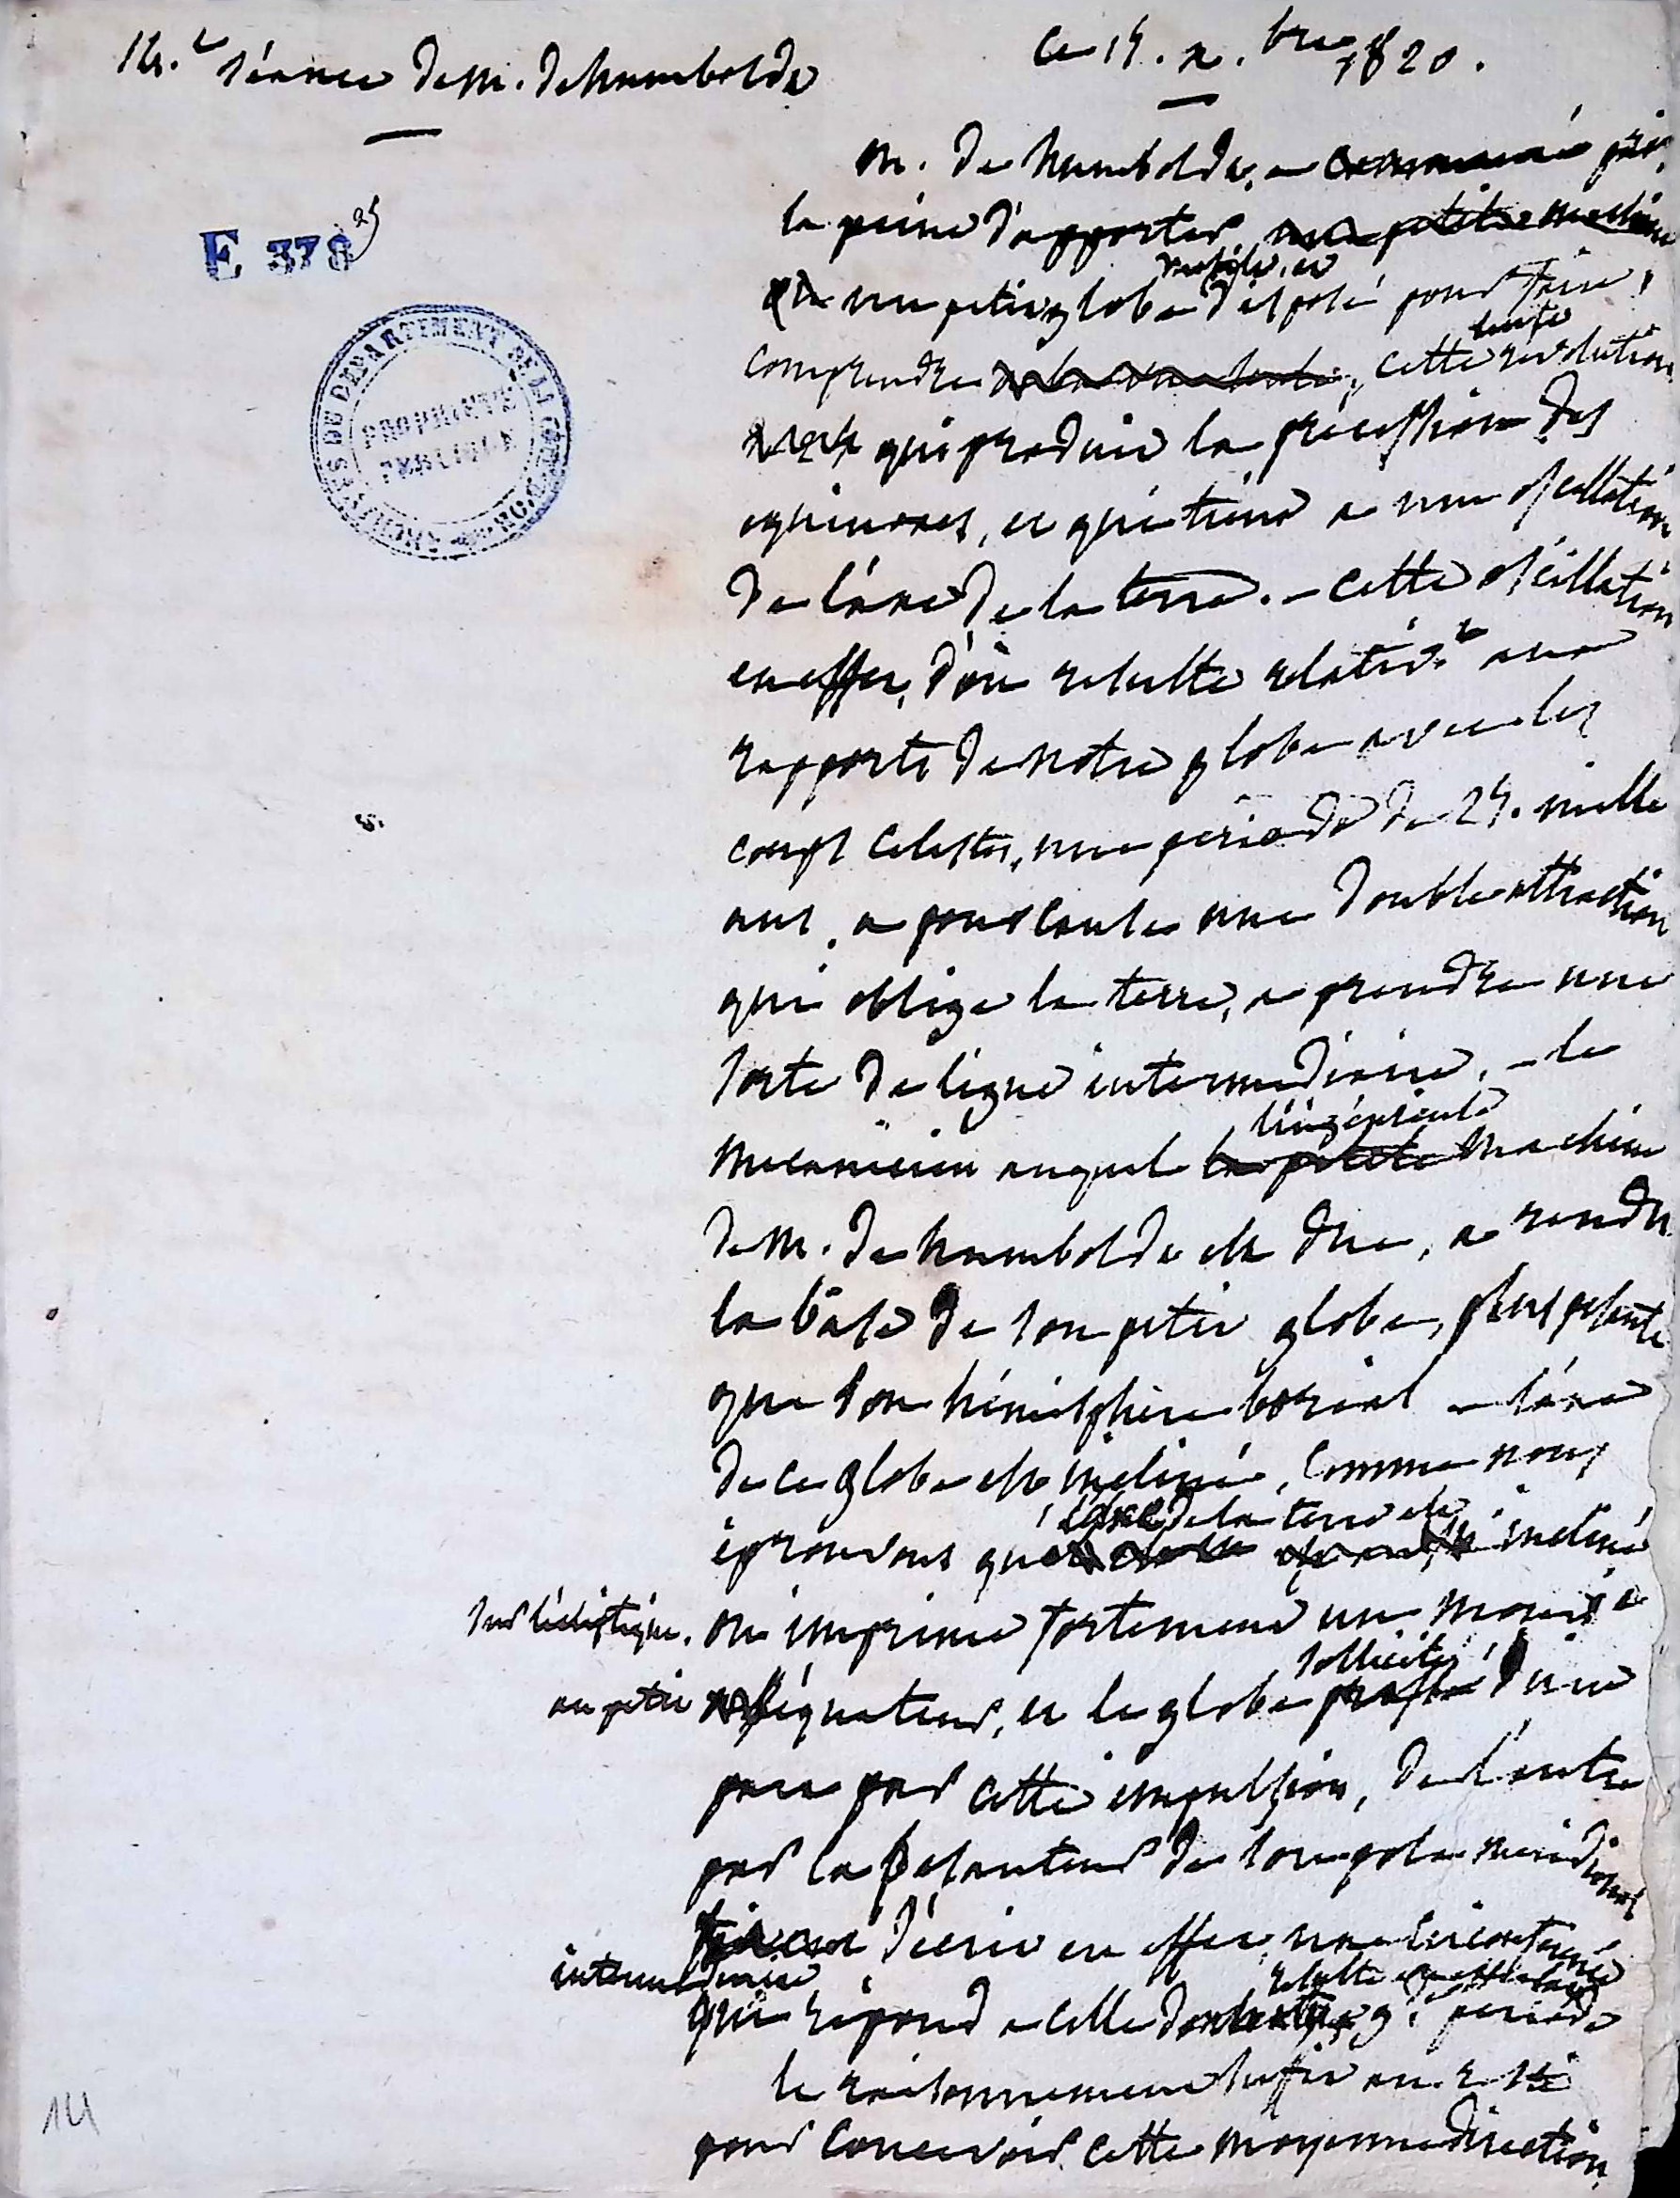 14.e séance de m. de humboldt
ce 15. x.bre 1820.
E 378 25
ARCHIVES DU DÉPARTEMENT DE LA CÔTE-D'OR
PROPRIÉTÉ PUBLIQUE
m. de humboldt, a commencé pris
la peine d'apporter, une petite machine
un petit globe disposé pour faire
mobile, et
comprendre cette revolution
lente
qui produit la précession des
equinoxes, et qui tient a une oscillation
de l'axe de la terre. - cette oscillation
en effet, d'où resulte relativt aux
rapports de notre globe avec les
corps celestes, une periode de 25. mille
ans, a pour cause une double attraction
qui oblige la terre, a prendre une
sorte de ligne intermediaire, - le
mecanicien auquel la petite machine
l'ingénieuse
de m. de humboldt est due, a rendu
la base de son petit globe, plus pesante
que son hémisphère boréal - l'axe
de ce globe est incliné, comme nous
éprouvons que incliné
l'axe de la terre est
sur l'écliptique. on imprime fortement un mouvt a
au petit équateur, et le globe d'une
sollicité
part par cette impulsion, de l'autre
par la pesanteur de son pole meridional
décrit en effet, une
intermediaire
qui répond a celle periode
resulte
le raisonnement suffit au
pour concevoir cette moyenne direction,
14